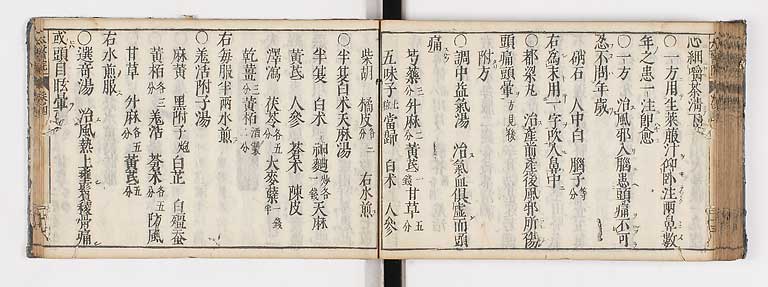 心細䁀茶清下
〇一方用生萊菔汁仰臥注兩鼻數
年之患一注卽愈
〇一方 治風邪入腦患頭痛不可
忍不問年歲
硝石 人中白 腦子等分
右為末用一字吹入鼻中
〇都梁丸 治產前產後風邪所傷
頭痛頭暈方見
附方
〇調中益氣湯 治氣血俱虛而頭
痛
芍藥三分 升麻二分 黃芪一錢 甘草五分
五味子 當歸 白术 人參
柴胡 橘皮各二 右水煎
〇半夏白术天麻湯
半夏 白术 神麯炒各一錢 天麻
黃芪 人參 蒼术 陳皮
澤瀉 茯苓各五分 大麥蘗一錢半
乾薑三分 黃栢二分
右每服半兩水煎
〇羌活附子湯
麻黃 黑附子炮 白芷 白殭蚕
黃栢各三分 羌活 蒼术各五分 防風
甘草 升麻各五分 黃芪各五分
右水煎服
〇選奇湯 治風熱上壅眉稜骨痛
或頭目眩暈